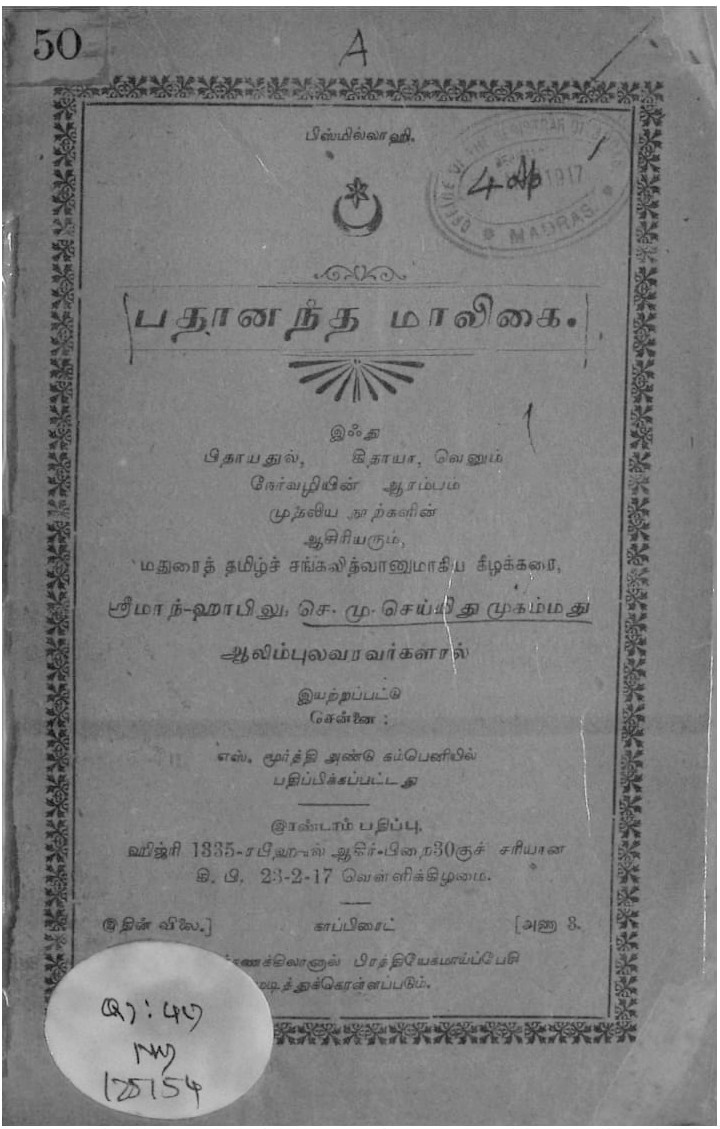 50
A
பிஸ்மில்லாஹி.
OFFICE OF THE REGISTRAR OF
4 1917
MADRAS
பதானந்த மாலிகை.
இஃது
பிதாயதுல், கிதாயா, வெனும்
நேர்வழியின் ஆரம்பம்
முதலிய நூற்களின்
ஆசிரியரும்,
மதுரைத் தமிழ்ச் சங்கவித்வானுமாகிய கீழக்கரை,
ஸ்ரீமாந்-ஹாபிலு, செ. மு. செய்யிது முகம்மது
ஆலிம்புலவரவர்களால்
இயற்றப்பட்டு
சென்னை :
எஸ். மூர்த்தி அண்டு கம்பெனியில்
பதிப்பிக்கப்பட்டது
இரண்டாம் பதிப்பு.
ஹிஜ்ரி 1335-ரபீஹுல் ஆகிர்-பிறை30குச் சரியான
கி. பி. 23-2-17 வெள்ளிக்கிழமை.
இதின் விலை.] காப்பிரைட் [அணா 3.
பிரத்தியேகமாய்ப்பேசி
125154